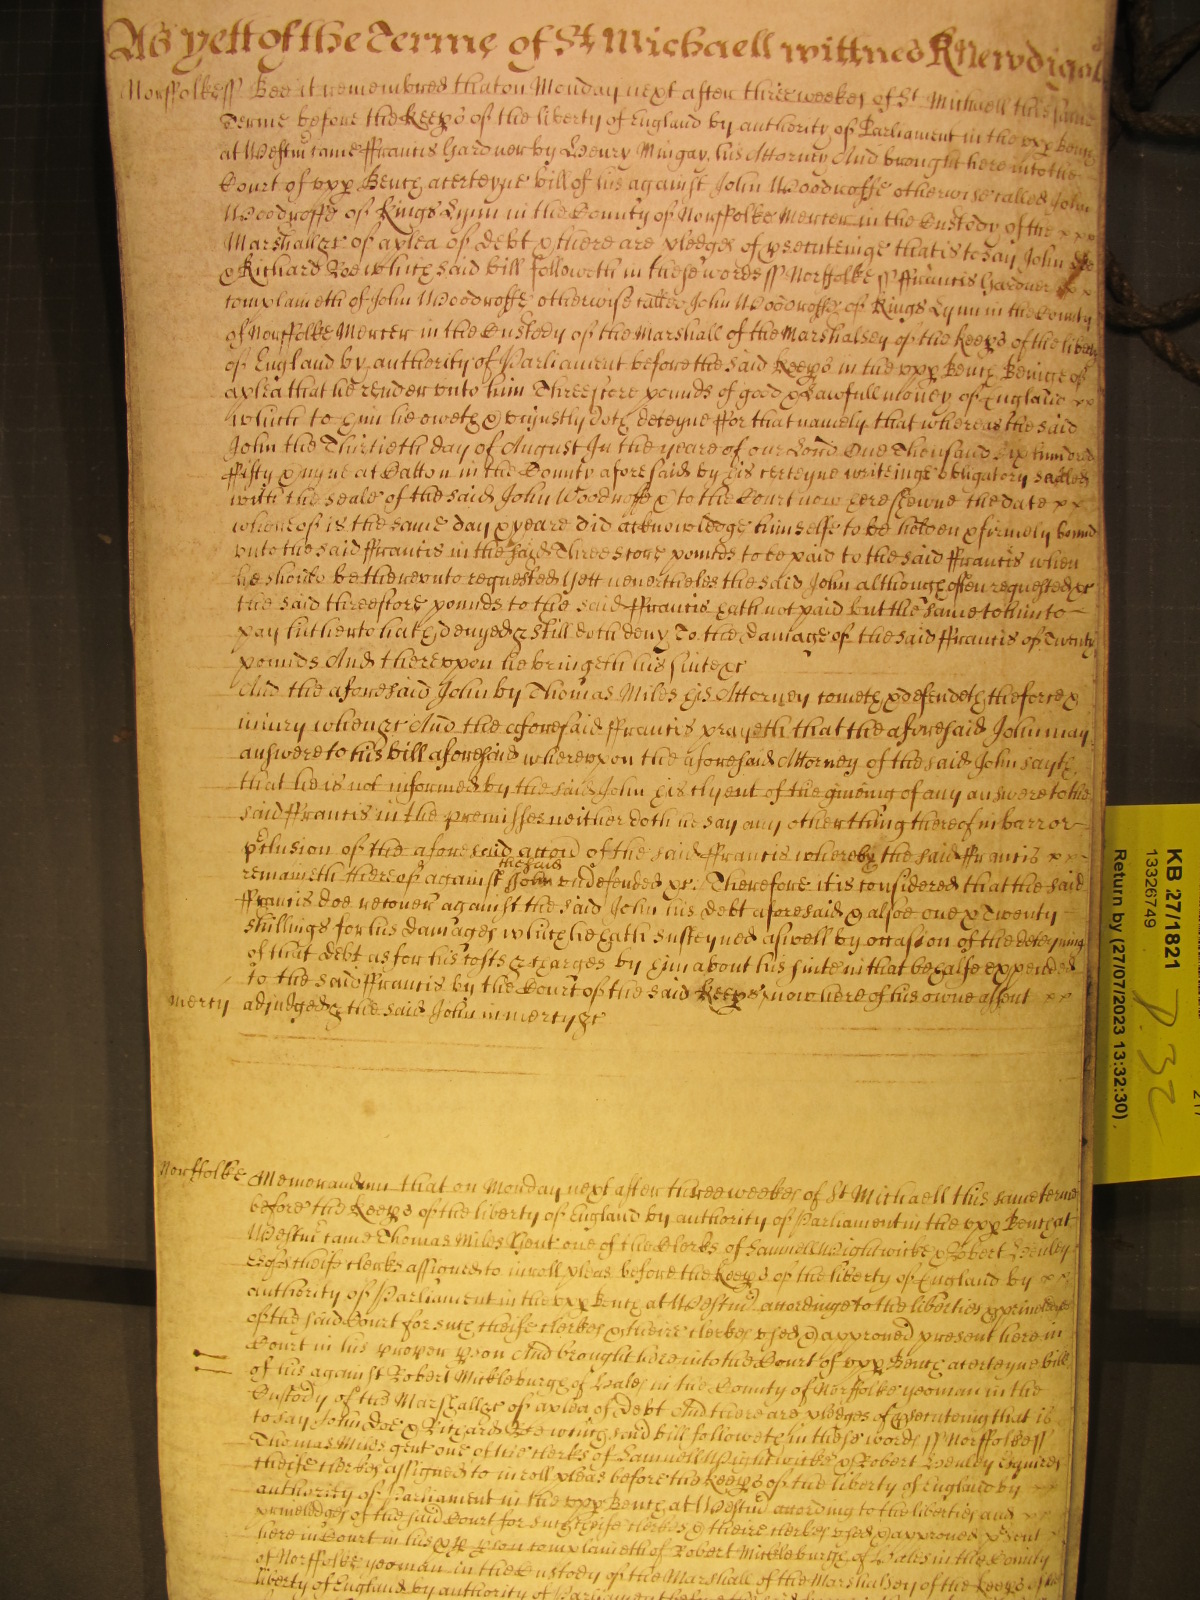 As yett of the Terme of St Michaell wittnes R Newdigat
Norffolke ss Bee it remembred that on Monday next after three weekes of St Michaell this same
Terme before the Keeps of the liberty of England by authority of Parliament in the vpp Bench
at Westm came Ffrancis Gardner by Henry Mingay his Attorney And brought here into the
Court of vpp Bench a certeyne bill of his against John Woodroffe otherwise called John
Woodroffe of Kings Lynn in the County of Norffolke Mercer in the Custody of the
Marshall &c of a plea of debt & there are pledges of psecuteinge that is to say John Doe
& Richard Roe which said bill followeth in these words ss Norffolke ss Ffrancis Gardner
complaineth of John Woodroffe otherwise called John Woodroffe of Kings Lynn in the County
of Norffolke Mercer in the Custody of the Marshall of the Marshalsey of the Keeps of the liberty
of England by authority of Parliament before the said Keeps in the vpp Bench Beinge of
a plea that he render unto him Threescore pounds of good & lawfull money of England
which to him he oweth & uniustly doth deteyne ffor that namely that whereas the said
John the Thirtieth day of August In the yeare of our Lord One Thousand six hundred
Ffifty & nyne at Hatton in the County aforesaid by his certeyne writeinge obligatory sealed
with the seale of the said John Woodroffe & to the Court now here shewne the date
whereof is the same day & yeare did acknowledge himselfe to be holden & firmely bound
unto the said Ffrancis in the said Threescore pounds to be paid to the said Ffrancis when
he should be thereunto requested Yett nevertheles the said John although often requested &c
the said threescore pounds to the said Ffrancis hath not paid but the same to him to
pay hitherto hath denyed & still doth deny To the damage of the said Ffrancis of Twenty
pounds And thereuppon he bringeth his suite &c
And the aforesaid John by Thomas Miles his Attorney cometh & defendeth the force &
iniury when &c And the aforesaid Ffrancis prayeth that the aforesaid John may
answere to his bill aforesaid whereupon the aforesaid Attorney of the said John sayth
that he is not informed by the said John his clyent of the giveing of any answere to the
said Ffrancis in the premisses neither doth he say any other thing thereof in barr or
pclusion of the aforesaid accon of the said Ffrancis whereby the said Ffrancis
the said
remaineth thereof against John undefended &c. Therefore it is considered that the said
Ffrancis doe recover against the said John his debt aforesaid & alsoe one & Twenty
shillings for his damages which he hath susteyned aswell by occasion of the deteyning
of that debt as for his costs & charges by him about his suite in that behalfe expended
to the said Ffrancis by the Court of the said Keeps now here of his owne assent
mercy adjudged & the said John in mercy &c
Norffolke Memorandum that on Monday next after three weekes of St Michaell this same terme
before the Keeps of the liberty of England by authority of Parliament in the vpp Bench at
Westm came Thomas Miles Gent one of the Clerks of Samuell Wightwicke & Robert Henley
Esqrs cheife clerks assigned to inroll pleas before the Keeps of the liberty of England by
authority of Parliament in the vpp Bench at Westm accordinge to the liberties & priviledges
of the said Court for such cheife clerkes & theire clerkes used & approved present here in
Court in his proper pson And brought here into the Court of vpp Bench a certeyne bill
of his against Robert Mickleburgh of Hales in the County of Norffolke yeoman in the
Custody of the Marshall &c of a plea of debt And there are pledges of psecuteing that is
to say John Doe & Richard Roe which said bill followeth in these words ss Norffolke ss
Thomas Miles gent one of the clerks of Samuell Wightwicke & Robert Henley Esquires
cheife clerkes assigned to inroll pleas before the Keeps of the liberty of England by
authority of Parliament in the vpp Bench at Westm according to the liberties and
priviledges of the said Court for such cheife clerkes & theire clerkes used & approved psent
here in Court in his pp pson complaineth of Robert Mickleburgh of Hales in the County
of Norffolke yeoman in the Custody of the Marshall of the Marshalsey of the Keeps of the
liberty of England by authority of Parliament
KB 27/1821
13326749
Return by (27/07/2023 13:32:30)
P. 32